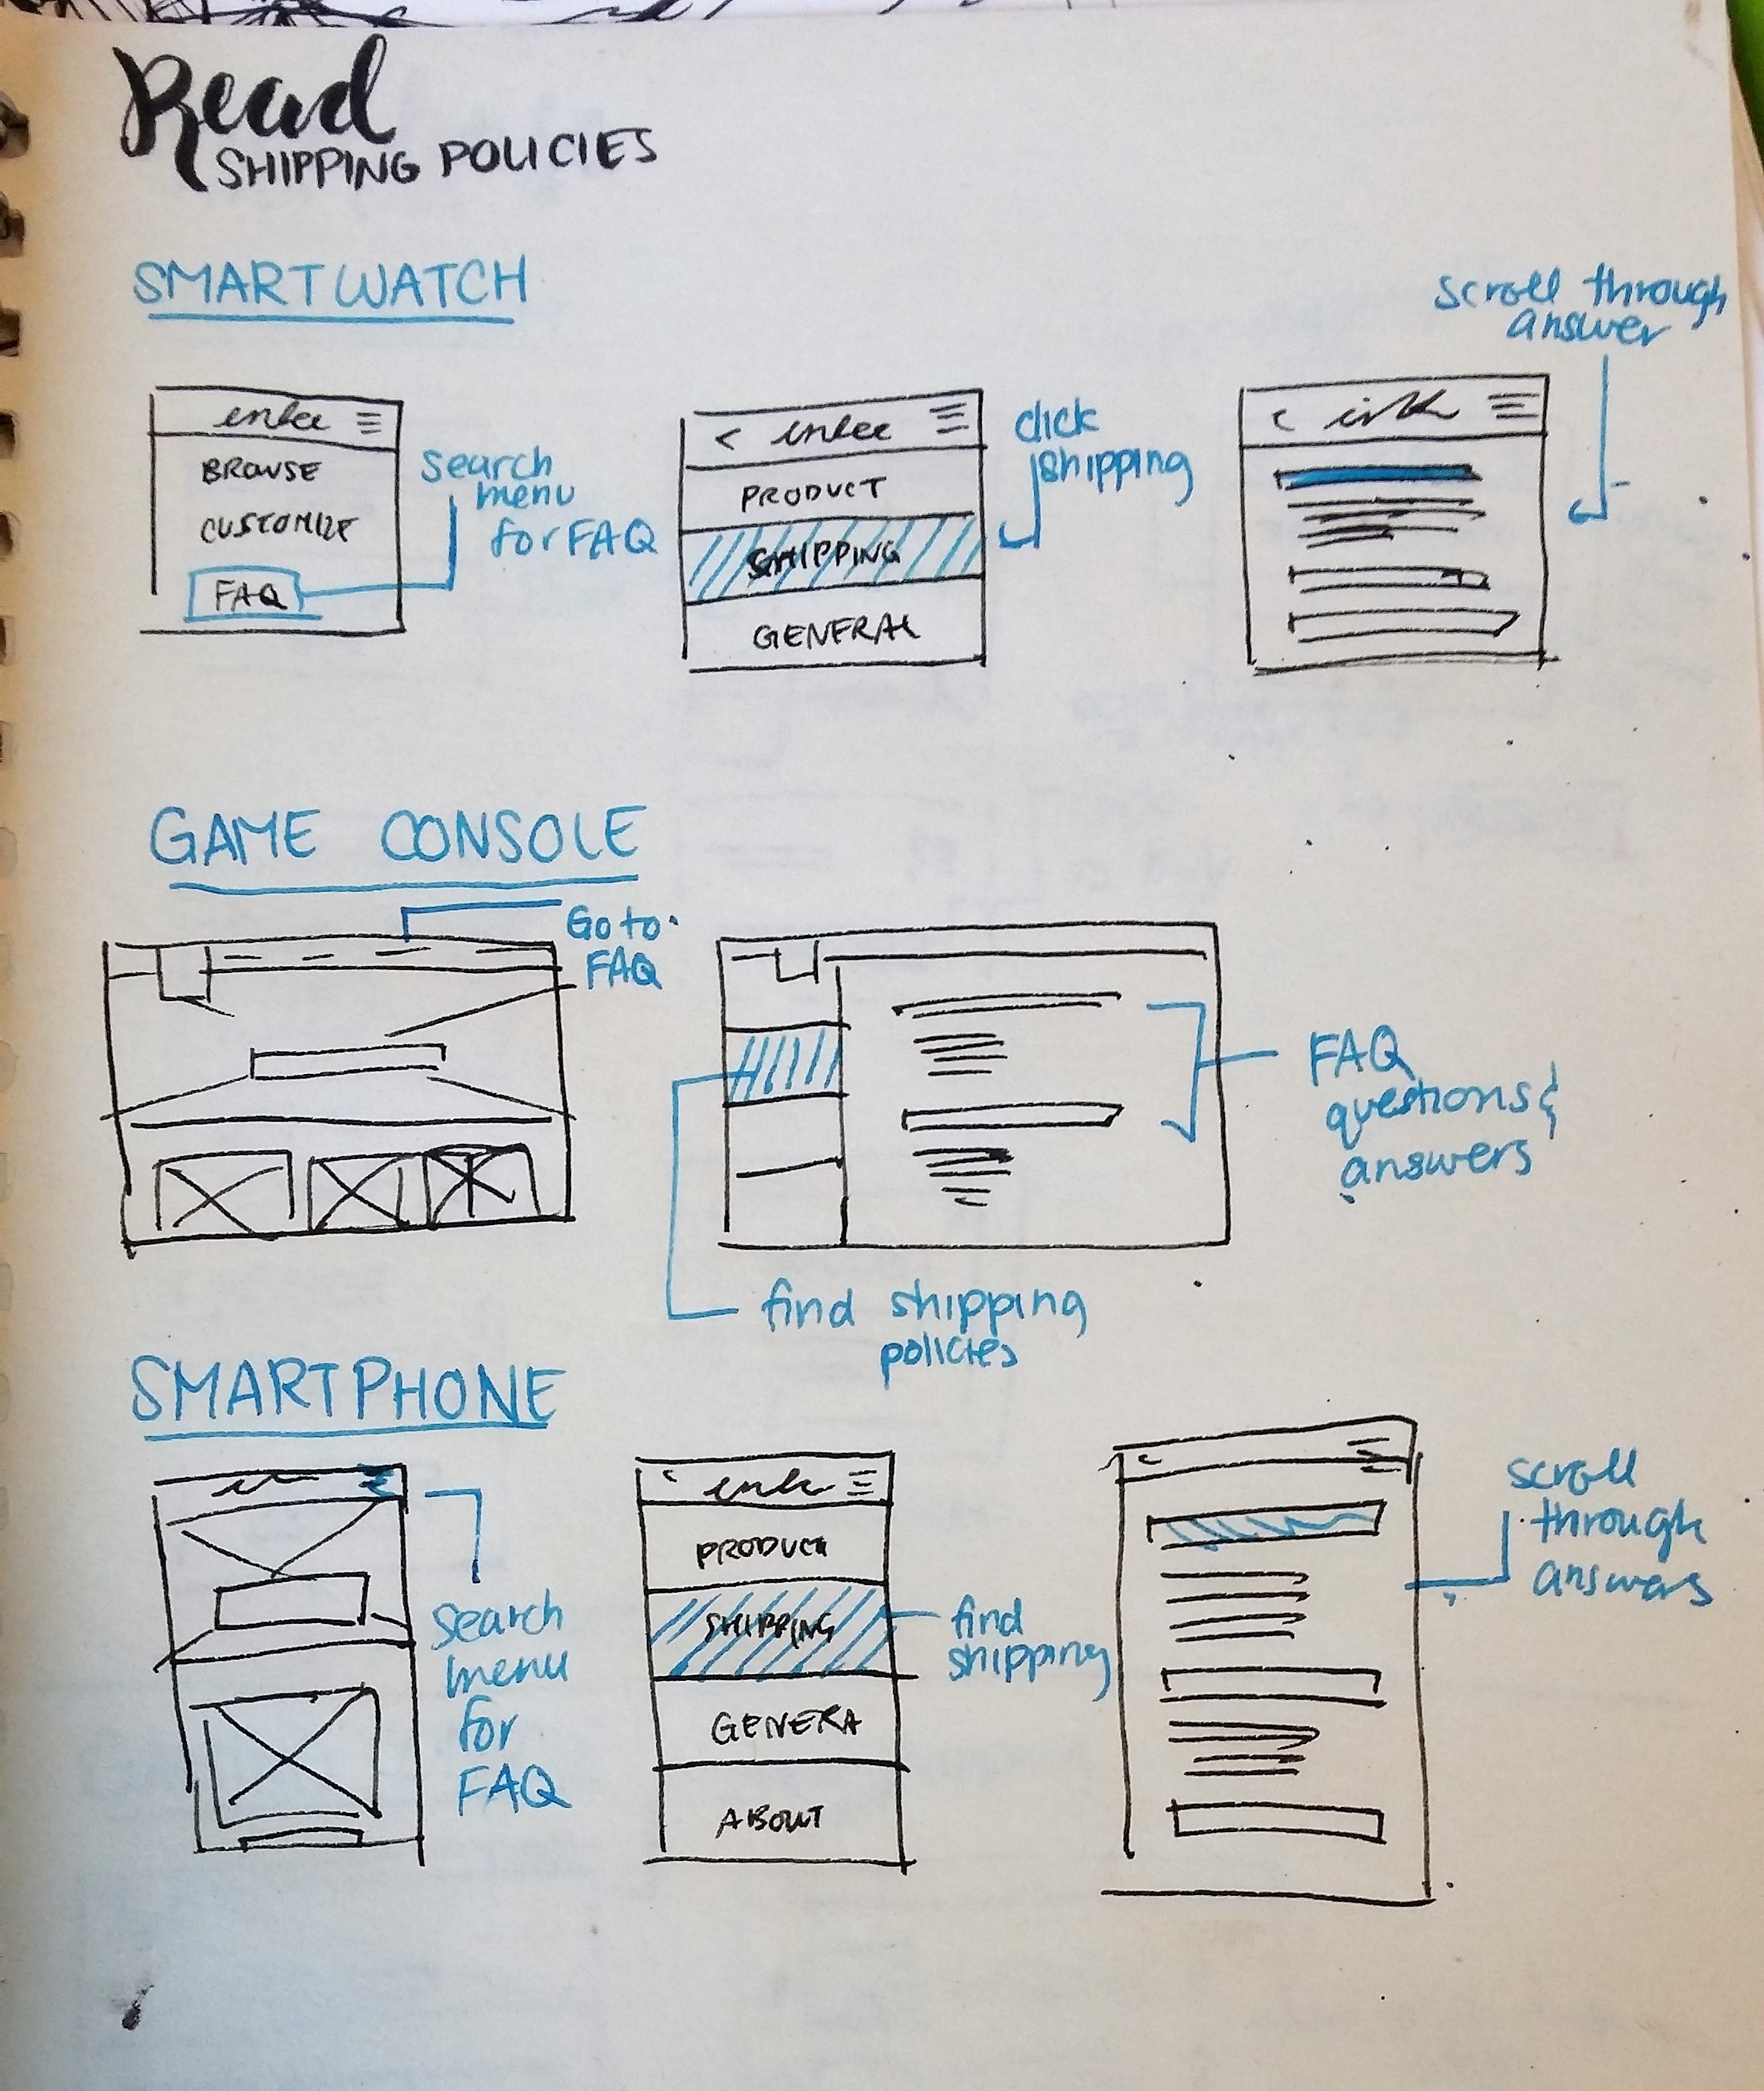 Read
SHIPPING POLICIES
SMARTWATCH
scroll through
answer
BROWSE
CUSTOMIZE
FAQ
search
menu
for FAQ
<
PRODUCT
SHIPPING
GENERAL
click
shipping
<
GAME CONSOLE
Go to
FAQ
FAQ
questions &
answers
find shipping
policies
SMARTPHONE
search
menu
for
FAQ
PRODUCT
SHIPPING
GENERA
ABOUT
find
shipping
scroll
through
answers